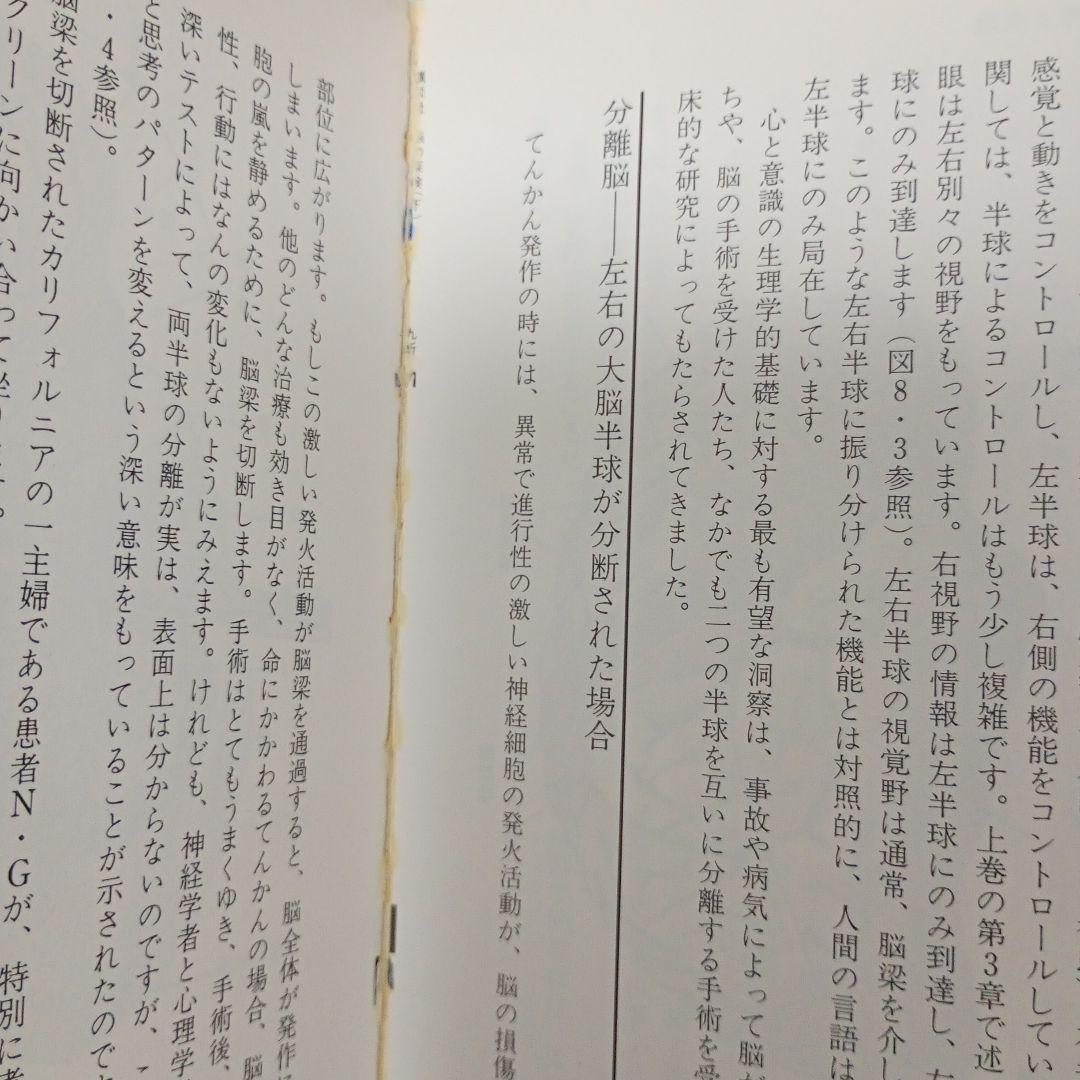 感覚と動きをコントロールし、左半球は、右側の機能をコントロールしてい
関しては、半球によるコントロールはもう少し複雑です。上巻の第3章で述
眼は左右別々の視野をもっています。右視野の情報は左半球にのみ到達し、
球にのみ到達します(図8・3参照)。左右半球の視覚野は通常、脳梁を介し
ます。このような左右半球に振り分けられた機能とは対照的に、人間の言語は
左半球にのみ局在しています。
心と意識の生理学的基礎に対する最も有望な洞察は、事故や病気によって脳が
ちや、脳の手術を受けた人たち、なかでも二つの半球を互いに分離する手術を受
床的な研究によってもたらされてきました。
分離脳——左右の大脳半球が分断された場合
てんかん発作の時には、異常で進行性の激しい神経細胞の発火活動が、脳の損傷
部位に広がります。もしこの激しい発火活動が脳梁を通過すると、脳全体が発作
しまいます。他のどんな治療も効き目がなく、命にかかわるてんかんの場合、
胞の嵐を静めるために、脳梁を切断します。手術はとてもうまくゆき、手術後、
性、行動にはなんの変化もないようにみえます。けれども、神経学者と心理学
深いテストによって、両半球の分離が実は、表面上は分からないのですが、
と思考のパターンを変えるという深い意味をもっていることが示されたので
・4参照)。
脳梁を切断されたカリフォルニアの一主婦である患者N・Gが、特別に
クリーンに向かい合って座ります。